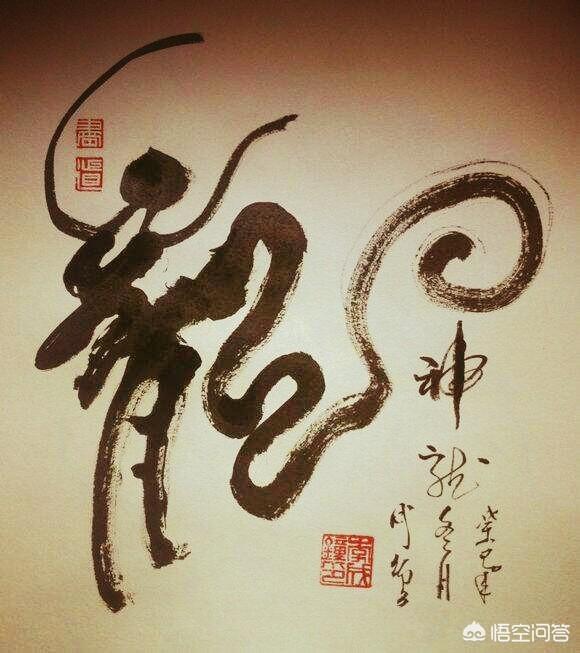 龍
書道
神龙
癸巳年
冬月
悟空问答